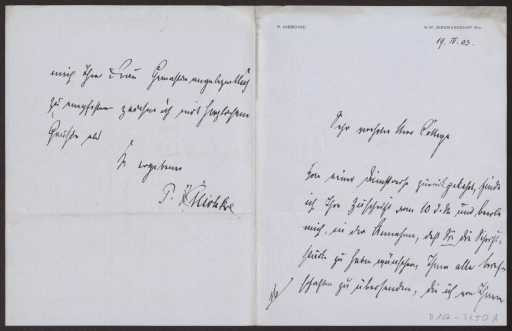 19. IV. 03.
Sehr verehrter Herr College
Von einer Dienstreise zurückgekehrt, finde
ich Ihre Zuschrift vom 10. d. M. und beeile
mich, in der Annahme, daß Sie die Schrift-
stücke zu haben wünschen, Ihnen alle
zu übersenden, die ich von Ihnen
mich Ihrer Frau Gemahlin angelegentlichst
zu empfehlen zeichne ich mit herzlichem
Gruße als
Ihr ergebener
P.